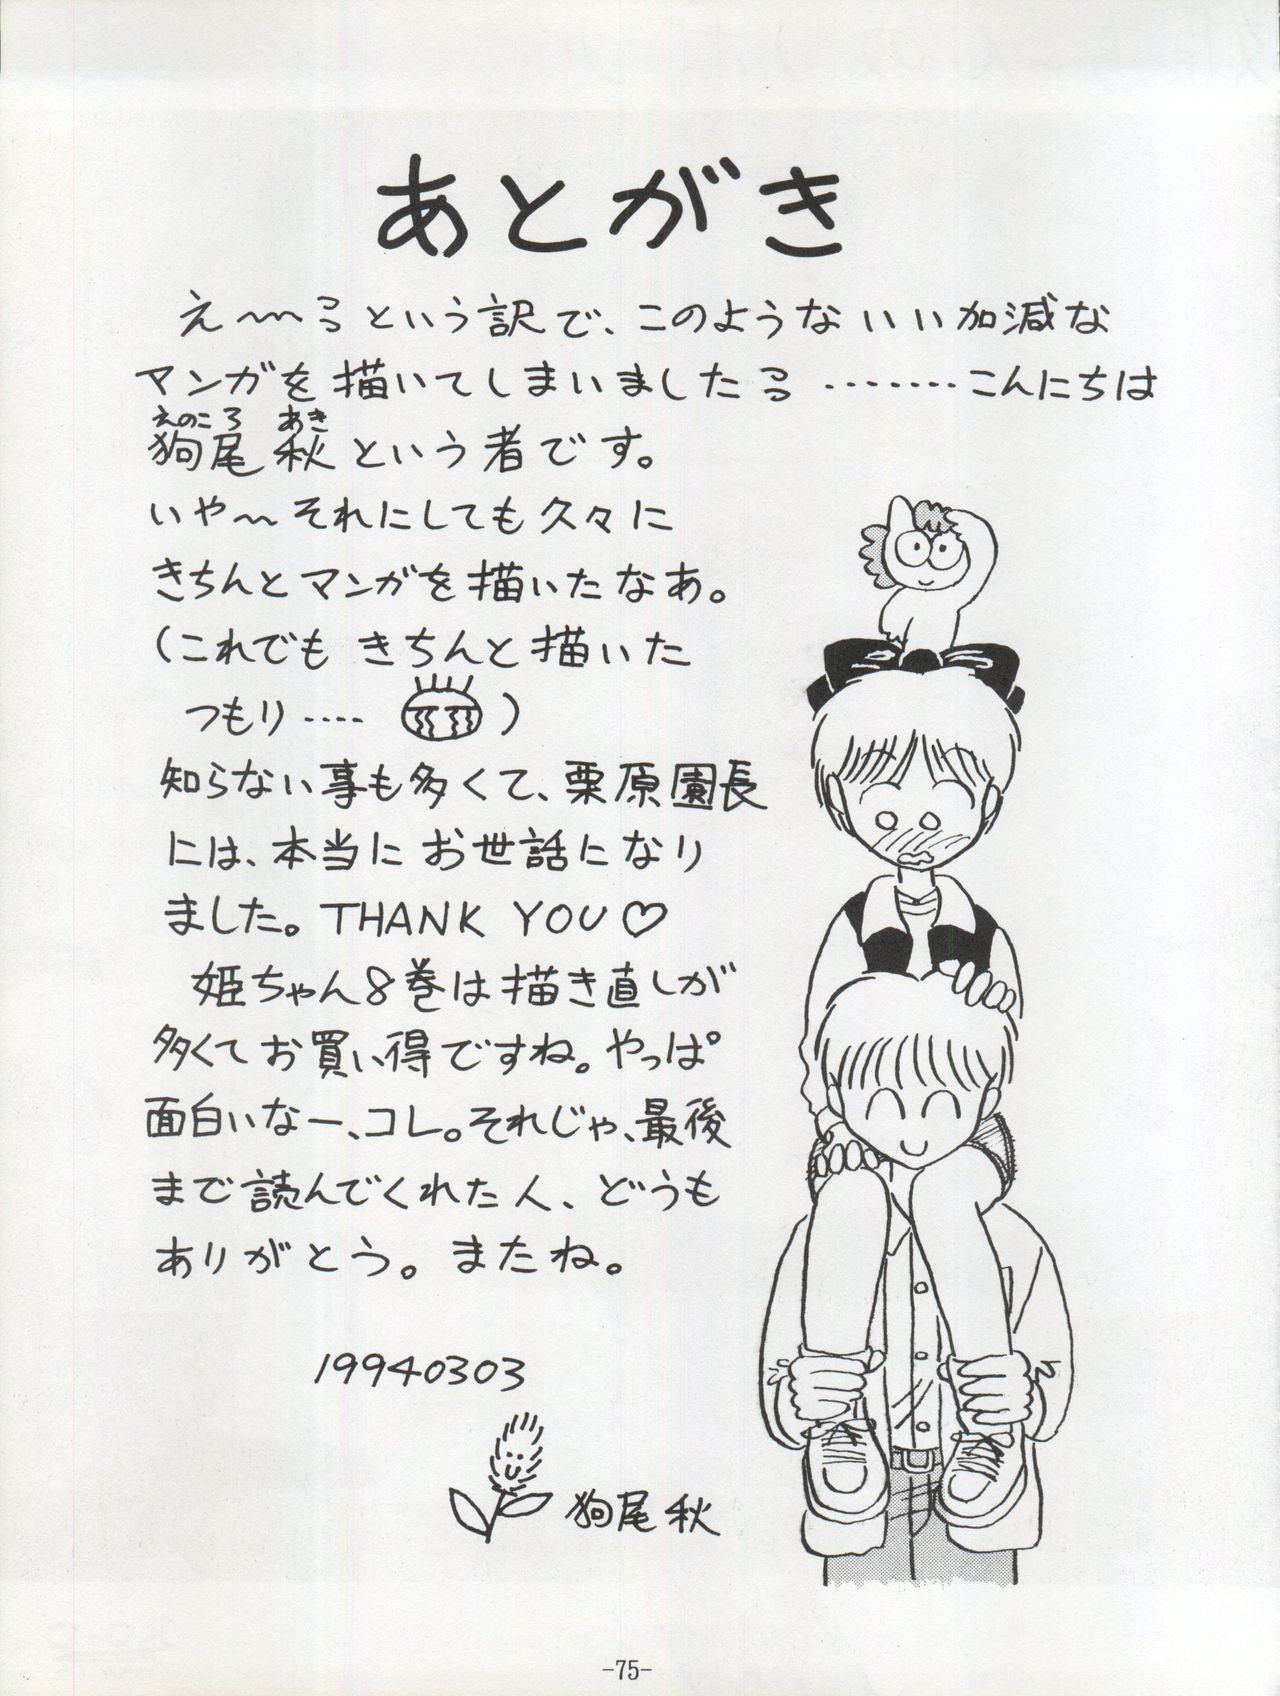 あとがき
え〜っという訳で、このようないい加減な
マンガを描いてしまいましたっ ‥‥‥‥こんにちは
えのころ あき
狗尾 秋という者です。
いや〜それにしても久々に
きちんとマンガを描いたなあ。
(これでも きちんと描いた
つもり‥‥ )
知らない事も多くて、栗原園長
には、本当にお世話になり
ました。THANK YOU♡
姫ちゃん8巻は描き直しが
多くてお買い得ですね。やっぱ
面白いなー、コレ。それじゃ、最後
まで読んでくれた人、どうも
ありがとう。またね。
19940303
狗尾 秋
-75-